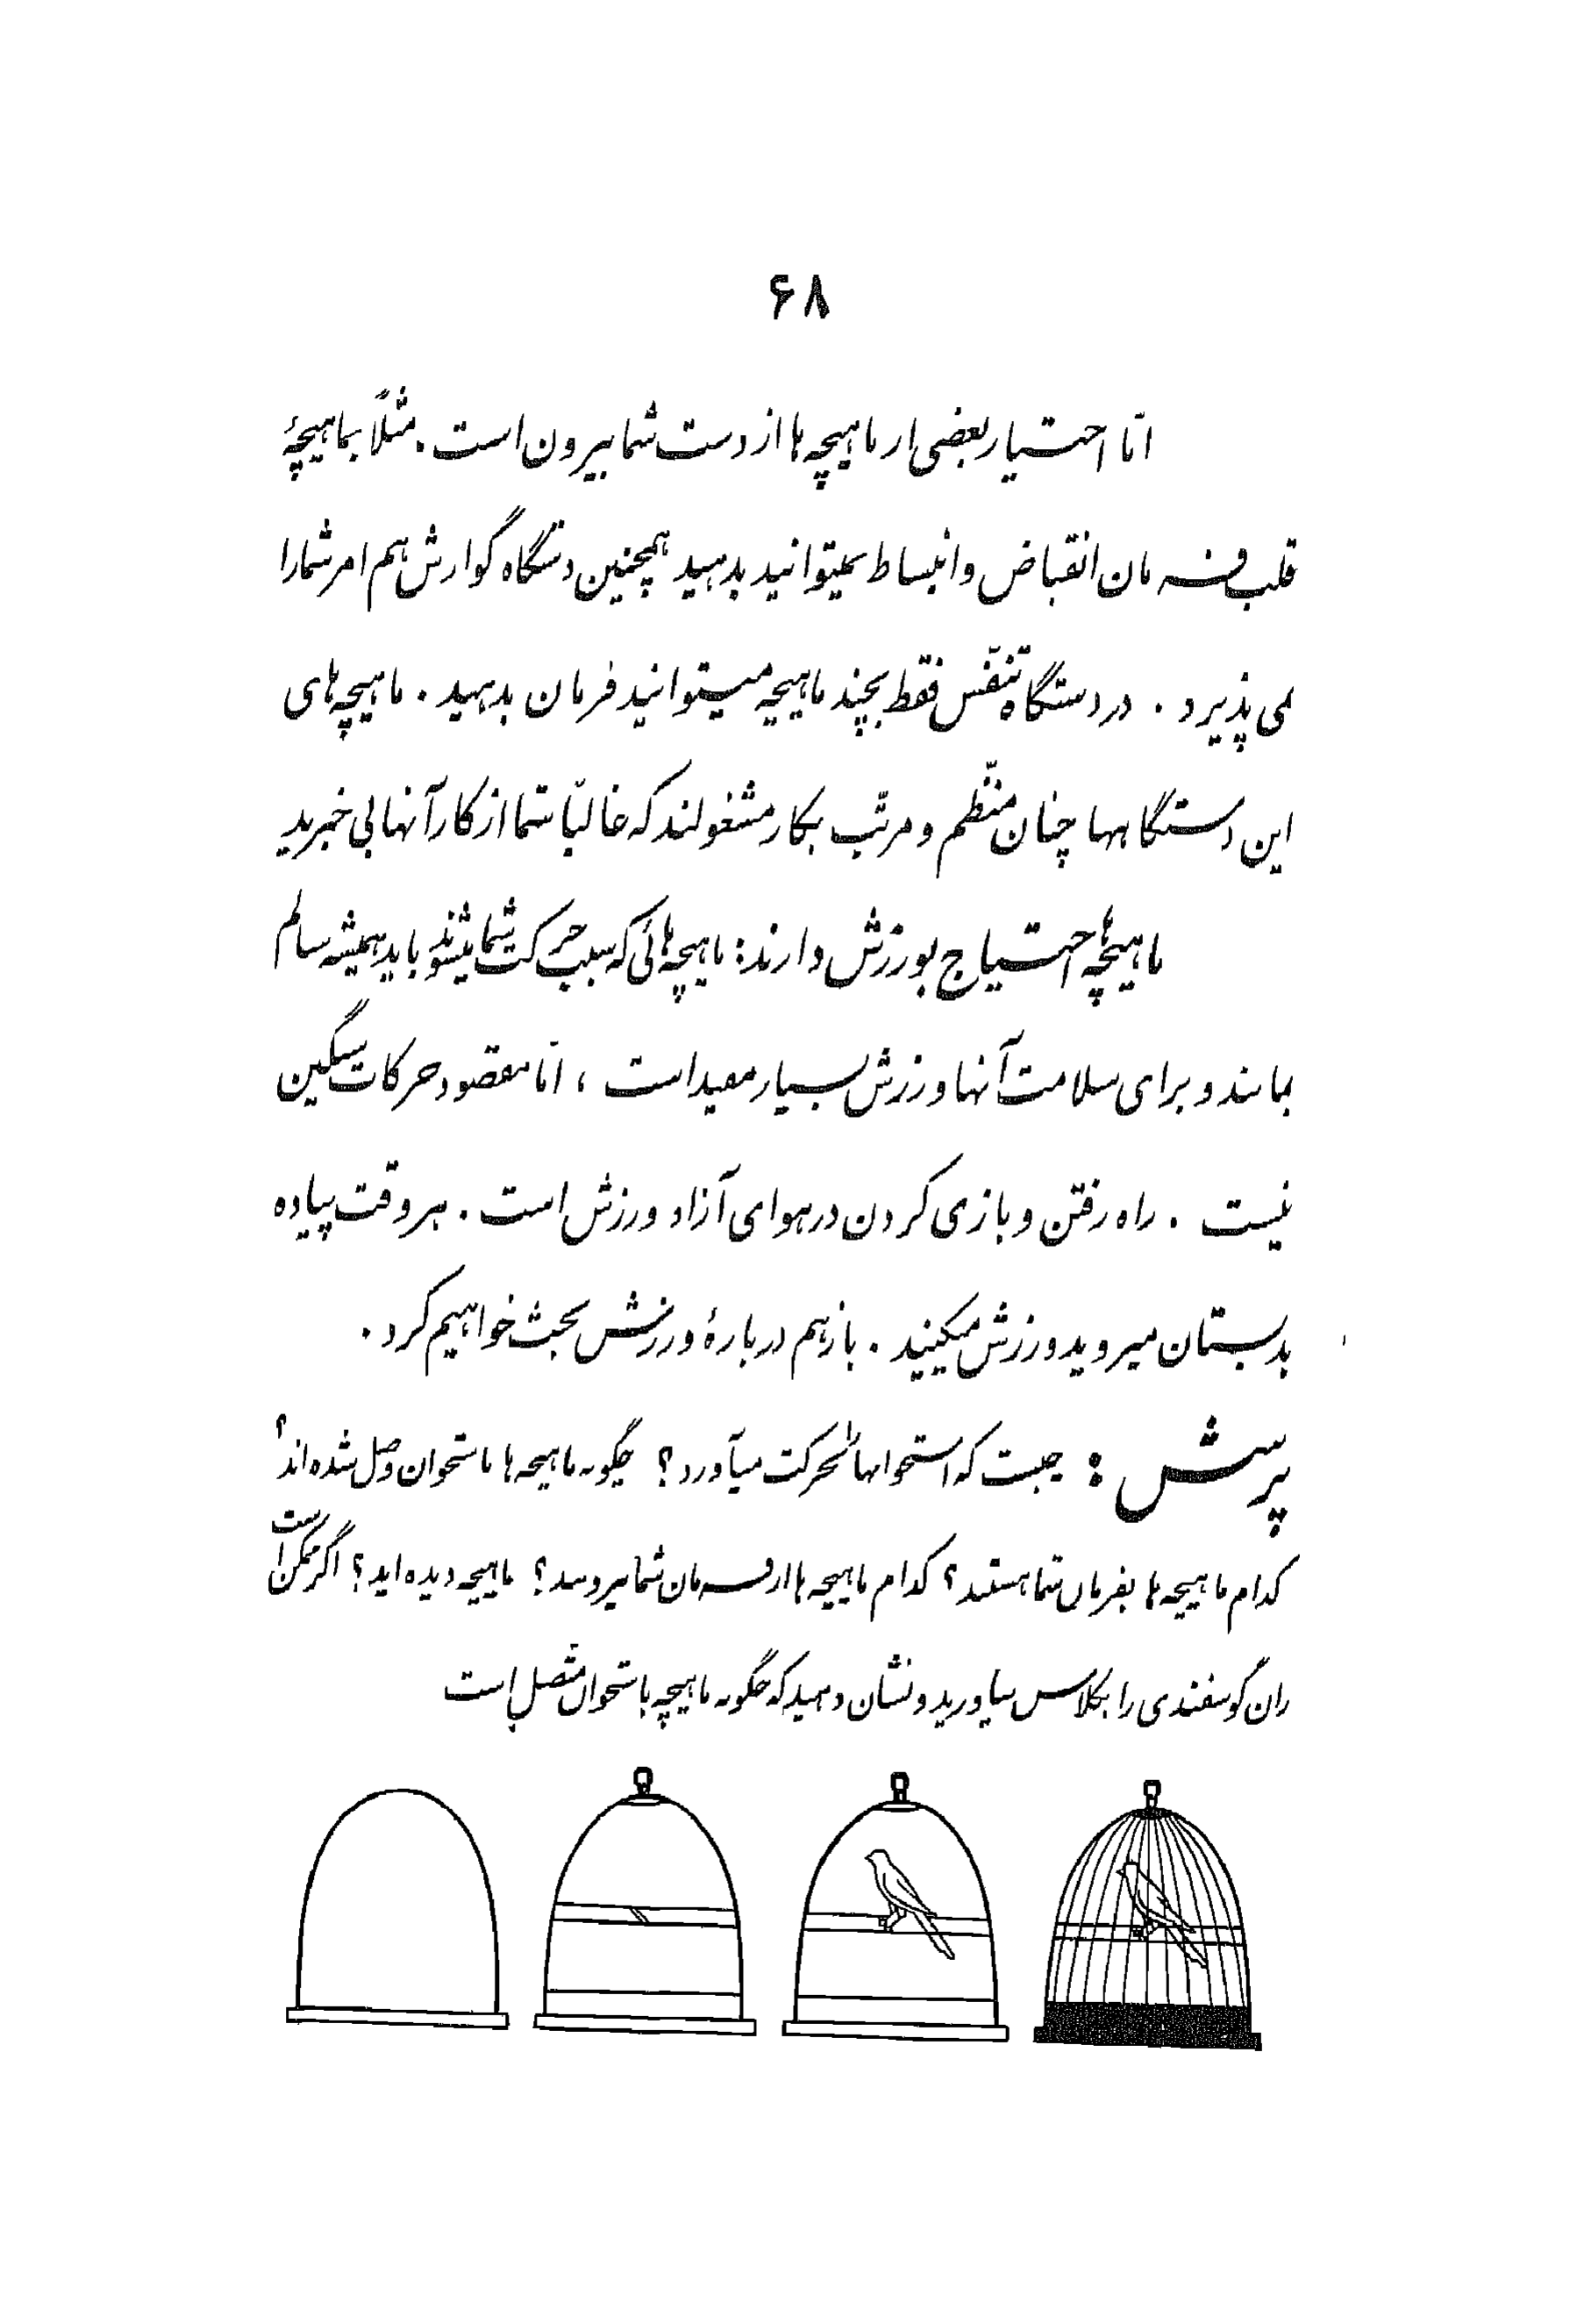 ۶۸
امّا اختیار بعضی از ماهیچه ها از دست شما بیرون است. مثلاً بماهیچهٔ
قلب فرمان انقباض و انبساط نمیتوانید بدهید همچنین دستگاه گوارش هم امر شما را
نمی پذیرد. در دستگاه تنفّس فقط بچند ماهیچه میتوانید فرمان بدهید. ماهیچه های
این دستگاهها چنان منظّم و مرتّب بکار مشغولند که غالباً شما از کار آنها بی خبرید
ماهیچه‌ها احتیاج بورزش دارند: ماهیچه هائی که سبب حرکت شما میشوند باید همیشه سالم
بمانند و برای سلامت آنها ورزش بسیار مفید است، امّا مقصود حرکات سنگین
نیست. راه رفتن و بازی کردن در هوای آزاد ورزش است. هر وقت پیاده
بدبستان میروید ورزش میکنید. باز هم دربارهٔ ورزش بحث خواهیم کرد.
پرسش: چیست که استخوانها را بحرکت میآورد؟ چگونه ماهیچه ها باستخوان وصل شده اند؟
کدام ماهیچه ها بفرمان شما هستند؟ کدام ماهیچه ها از فرمان شما بیروند؟ ماهیچه دیده اید؟ اگر ممکن است
ران گوسفندی را بکلاس بیاورید و نشان دهید که چگونه ماهیچه باستخوان متّصل است